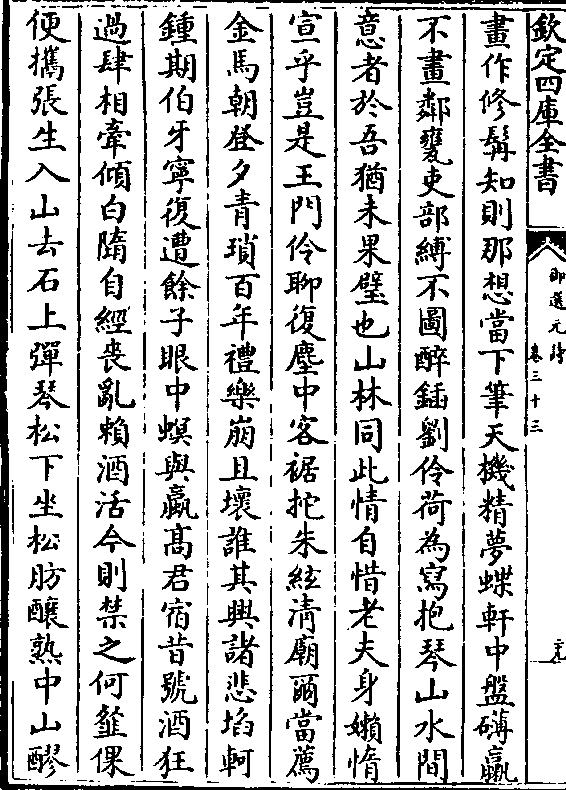 欽定四庫全書
御選元詩
卷三十三
畫作修髯知則那想當下筆天機精夢蝶軒中盤礴羸
不畫鄰甕吏部縛不圖醉鍤劉伶荷為寫抱琴山水間
意者於吾猶未果壁也山林同此情自惜老夫身嬾惰
宣乎豈是王門伶聊復塵中客裾拕朱絃清廟爾當薦
金馬朝登夕青瑣百年禮樂崩且壞誰其興諸悲埳軻
鍾期伯牙寧復遭餘子眼中螟與蠃髙君宿昔號酒狂
過肆相牽傾白墮自經喪亂賴酒活今則禁之何韰倮
便攜張生入山去石上彈琴松下坐松肪釀熟中山醪